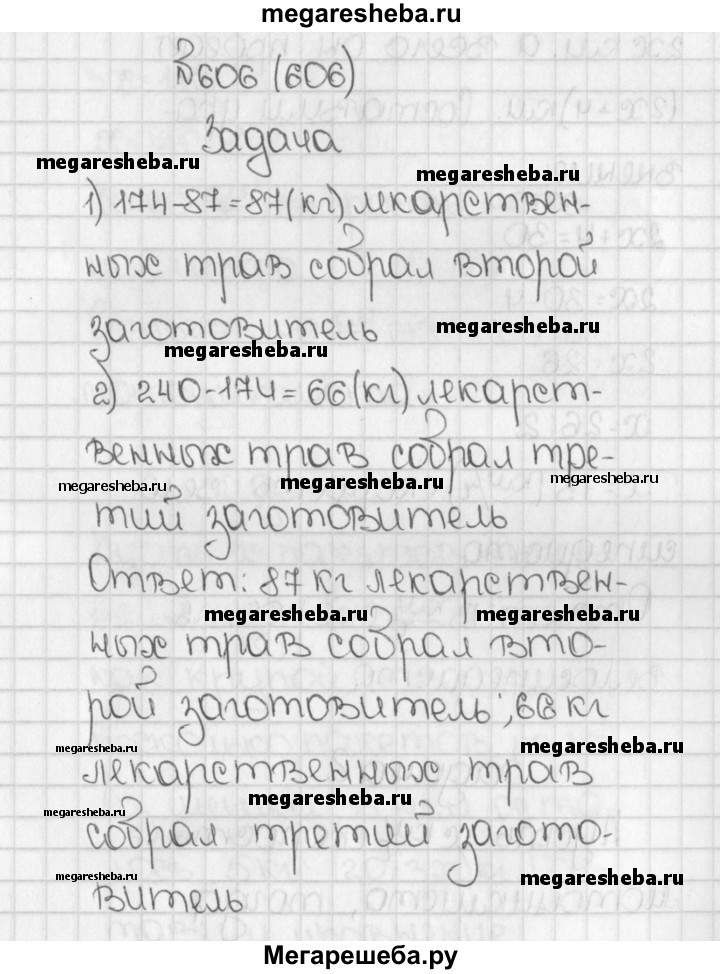 megaresheba.ru
№606 (606)
Задача
megaresheba.ru
megaresheba.ru
1) 174-87=87(кг) лекарствен-
ных трав собрал второй
заготовитель
megaresheba.ru
megaresheba.ru
2) 240-174=66(кг) лекарст-
венных трав собрал тре-
megaresheba.ru
megaresheba.ru
megaresheba.ru
тий заготовитель
Ответ: 87 кг лекарствен-
megaresheba.ru
megaresheba.ru
ных трав собрал вто-
рой заготовитель; 66 кг
megaresheba.ru
megaresheba.ru
лекарственных трав
megaresheba.ru
megaresheba.ru
собрал третий загото-
megaresheba.ru
megaresheba.ru
витель
Мегарешеба.ру